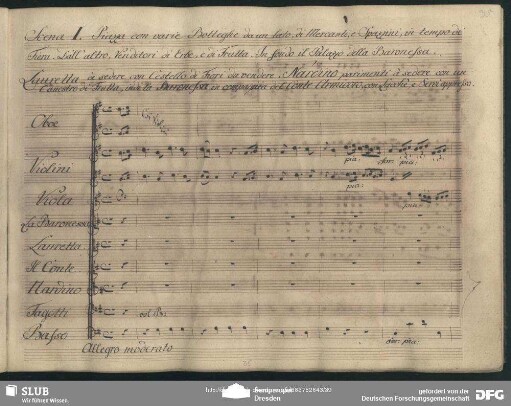 Scena I. Piazza con varie Botteghe da un lato, di Mercanti, e Spazini, in tempo di
Fiera. Dall' altro, Venditori di Erbe, e di Frutta. In fondo il Palazzo della Baronessa.
Lauretta, a sedere con Cestello di Fiori da vendere. Nardino parimenti à sedere con un
Canestro di Frutta, indi la Baronessa in compagnia del Conte con Paggi, e Servi appresso.
Oboe
Violini
pia:
for: pia:
pia:
Viola
pia:
La Baronessa
Lauretta
Il Conte
Nardino
Fagotti
col B:
Basso
for: pia:
Allegro moderato
SLUB
Wir führen Wissen.
Dresden
gefördert von der
Deutschen Forschungsgemeinschaft
DFG